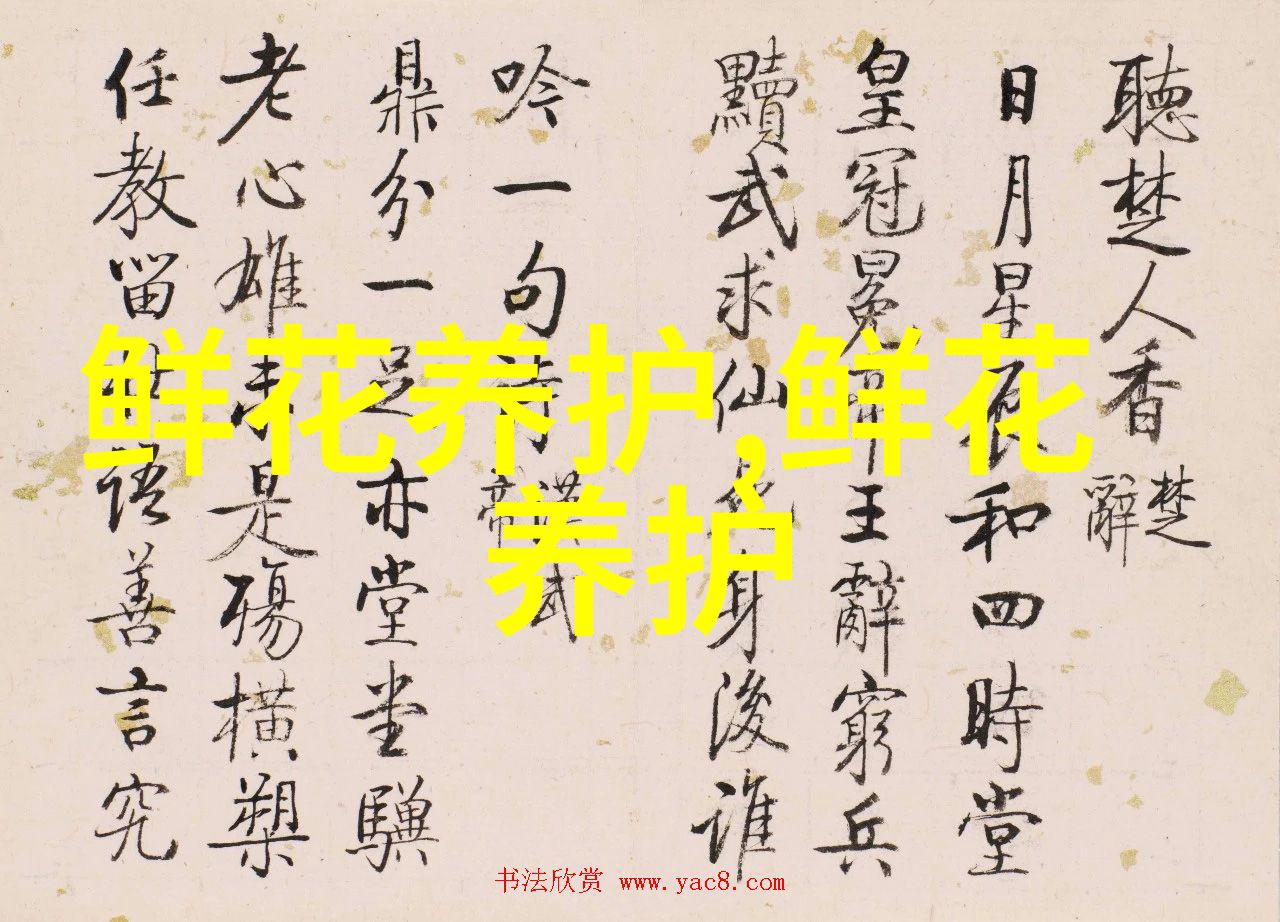 聽楚人香 楚辭
日月星辰和四時堂
皇冠冕王辭窮兵
黷武求仙身後誰
吟一句詩 漢武帝
鼎分一足亦堂堂驥
老心雄未是殤橫槊
任教留世語善言究
鲜花养护,鲜花
养护
书法欣赏 www.yac8.com